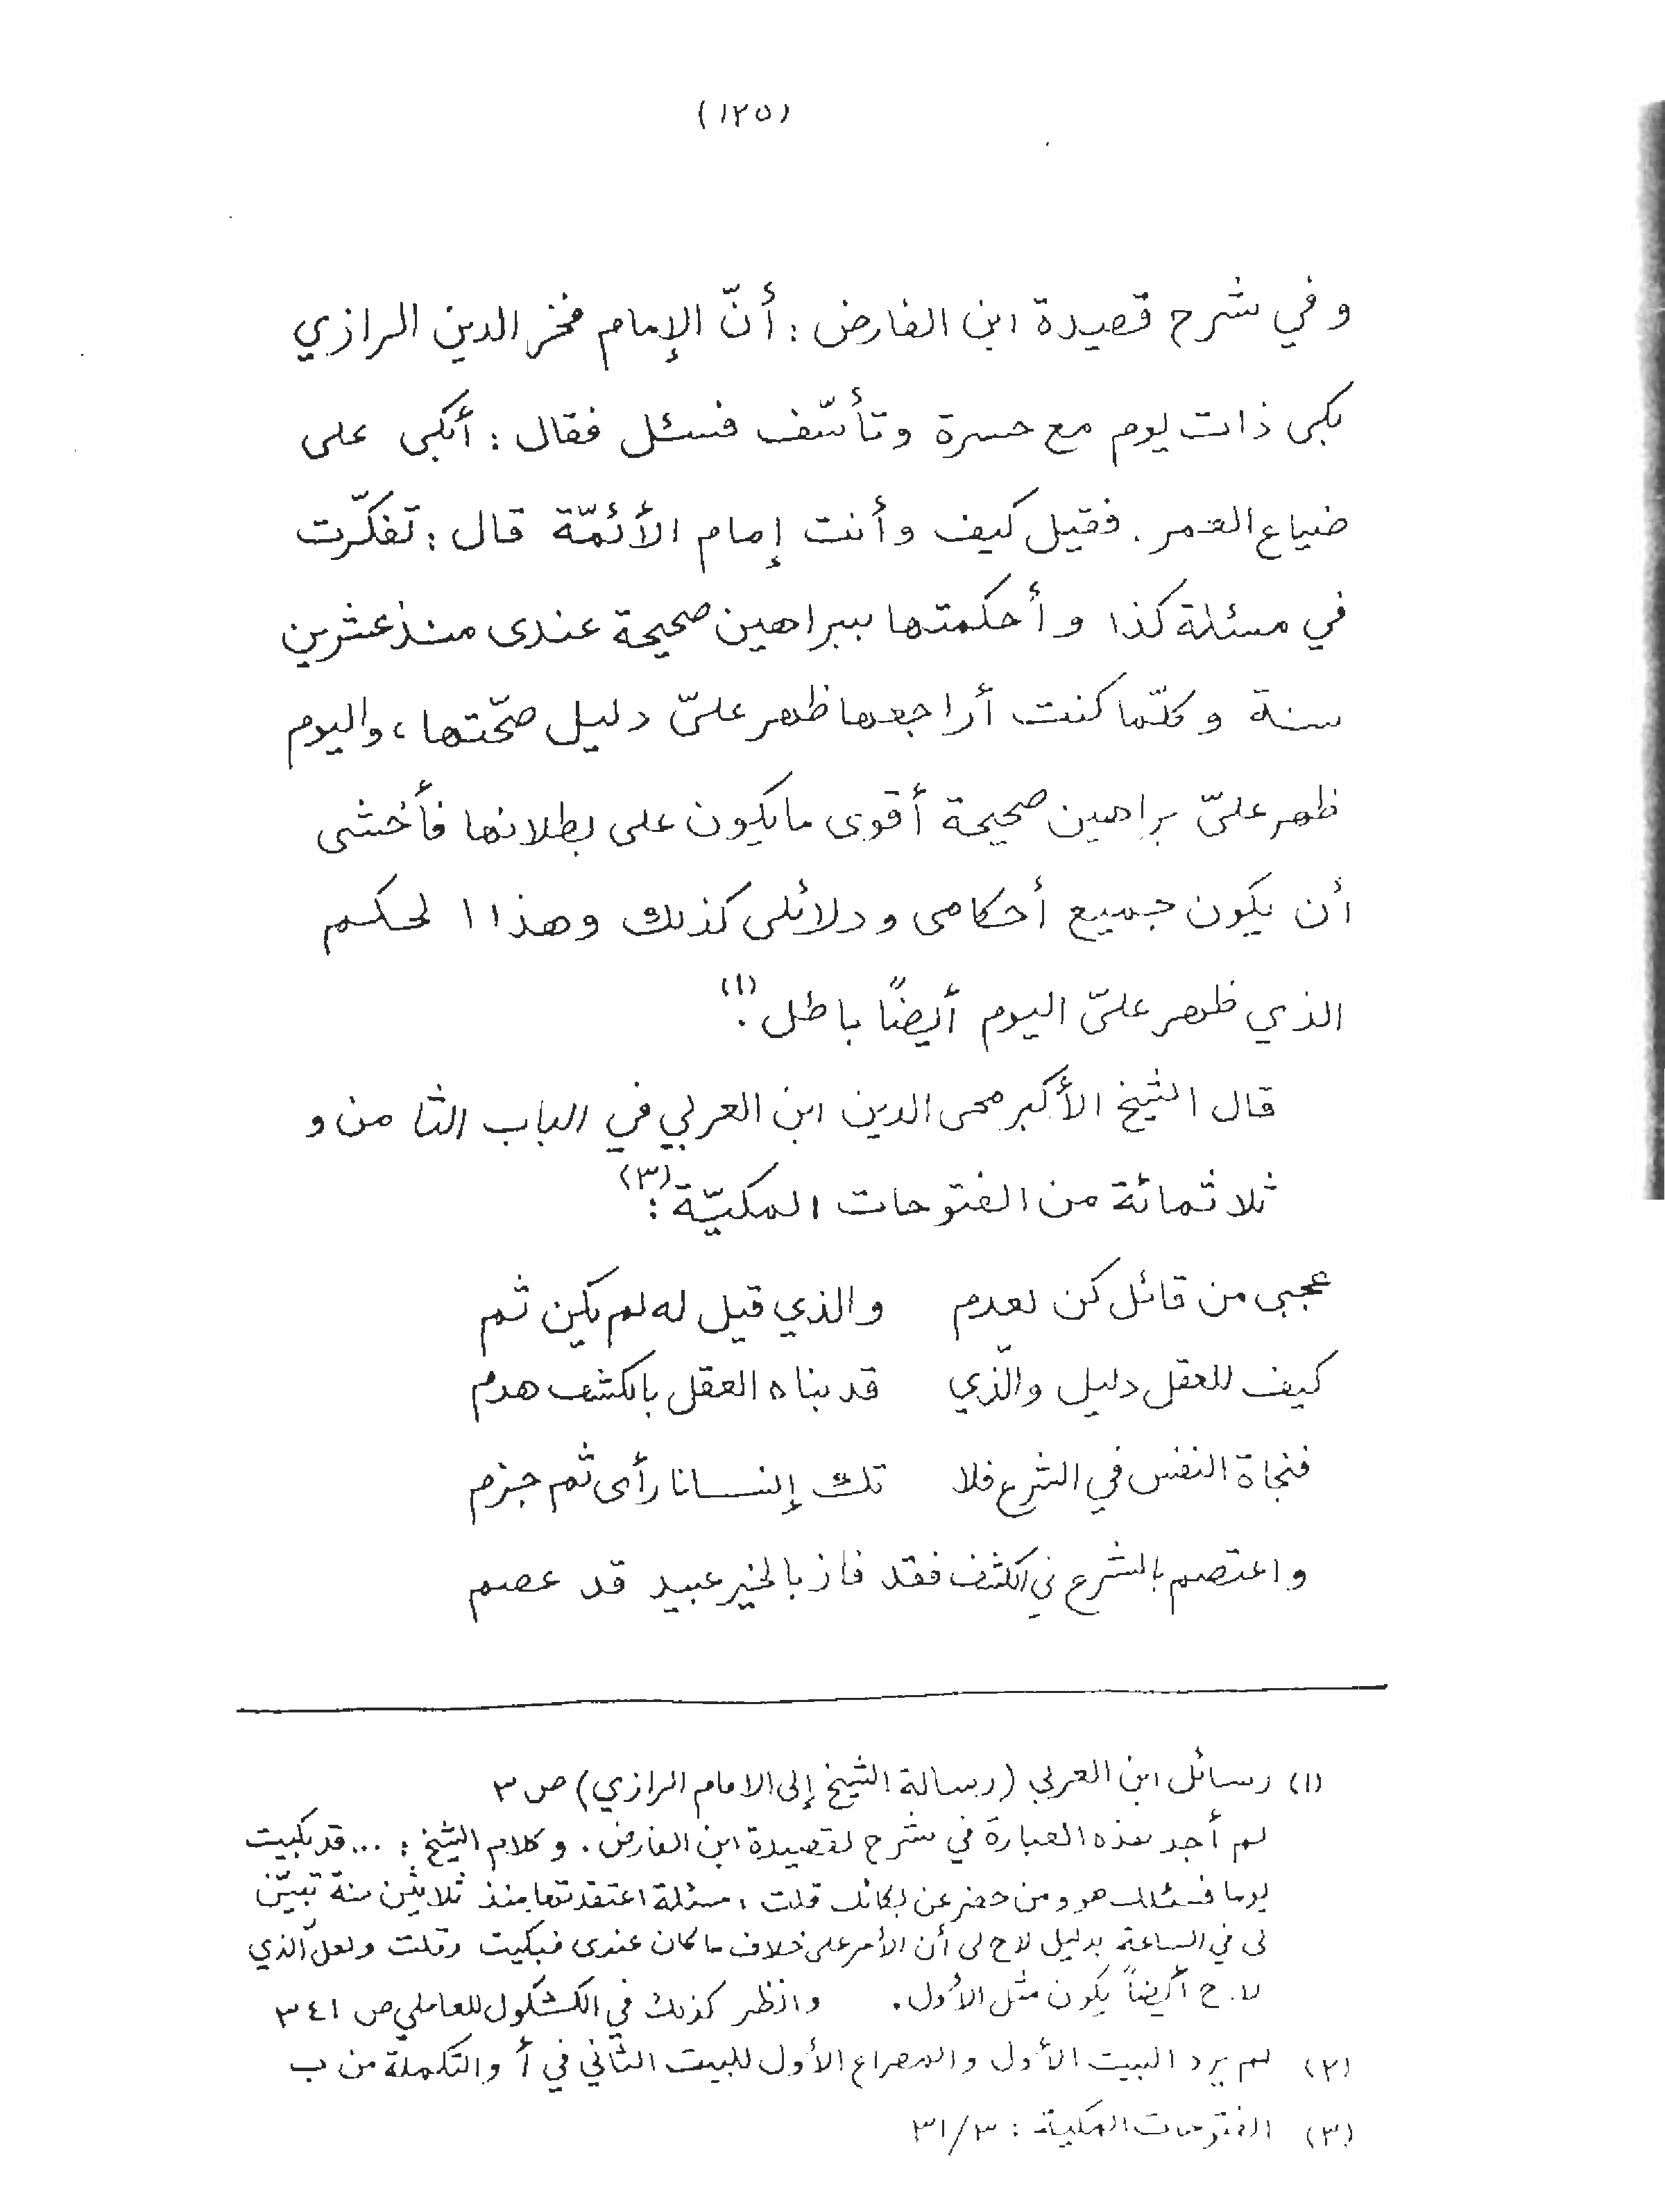 (١٢٥)
وفي شرح قصيدة ابن الفارض : أنّ الإمام فخر الدين الرازي
بكى ذات يوم مع حسرة وتأسّف فسئل فقال : أبكى على
ضياع العمر . فقيل كيف وأنت إمام الأئمّة قال : تفكّرت
في مسئلة كذا وأحكمتها ببراهين صحيحة عندى منذ عشرين
سنة وكلّما كنت أراجعها ظهر علىّ دليل صحّتها ، واليوم
ظهر علىّ براهين صحيحة أقوى ما يكون على بطلانها فأخشى
أن يكون جميع أحكامى ودلائلى كذلك وهذا الحكم
الذي ظهر علىّ اليوم أيضًا باطل . (١)
قال الشيخ الأكبر محى الدين ابن العربي في الباب الثامن و
ثلاثمائة من الفتوحات المكيّة : (٣)
عجبى من قائل كن لعدم والذي قيل له لم يكن ثم
كيف للعقل دليل والّذي قد بناه العقل بالكشف هدم
فنجاة النفس في الشرع فلا تك إنسانا رأى ثم جزم
واعتصم بالشرع في الكشف فقد فاز بالخير عبيد قد عصم
(١) رسائل ابن العربي (رسالة الشيخ إلى الامام الرازي) ص ٣
لم أجد هذه العبارة في شرح لقصيدة ابن الفارض . وكلام الشيخ : ... قد بكيت
يوما فسئلك هو ومن حضر عن بكائك قلت : مسئلة اعتقدتها منذ ثلاثين سنة تبيّن
لى في الساعة بدليل لاح لى أن الأمر على خلاف ما كان عندى فبكيت وقلت ولعلّ الذي
لاح أيضاً يكون مثل الأول . وانظر كذلك في الكشكول للعاملي ص ٣٤١
(٢) لم يرد البيت الأول والمصراع الأول للبيت الثاني في أ والتكملة من ب
(٣) الفتوحات المكية : ٣١/٣